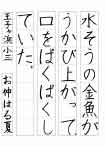 水そうの金魚が
うかび上がって
口をぱくぱくし
ていた。
王子ヶ浜小三 お仲はる夏